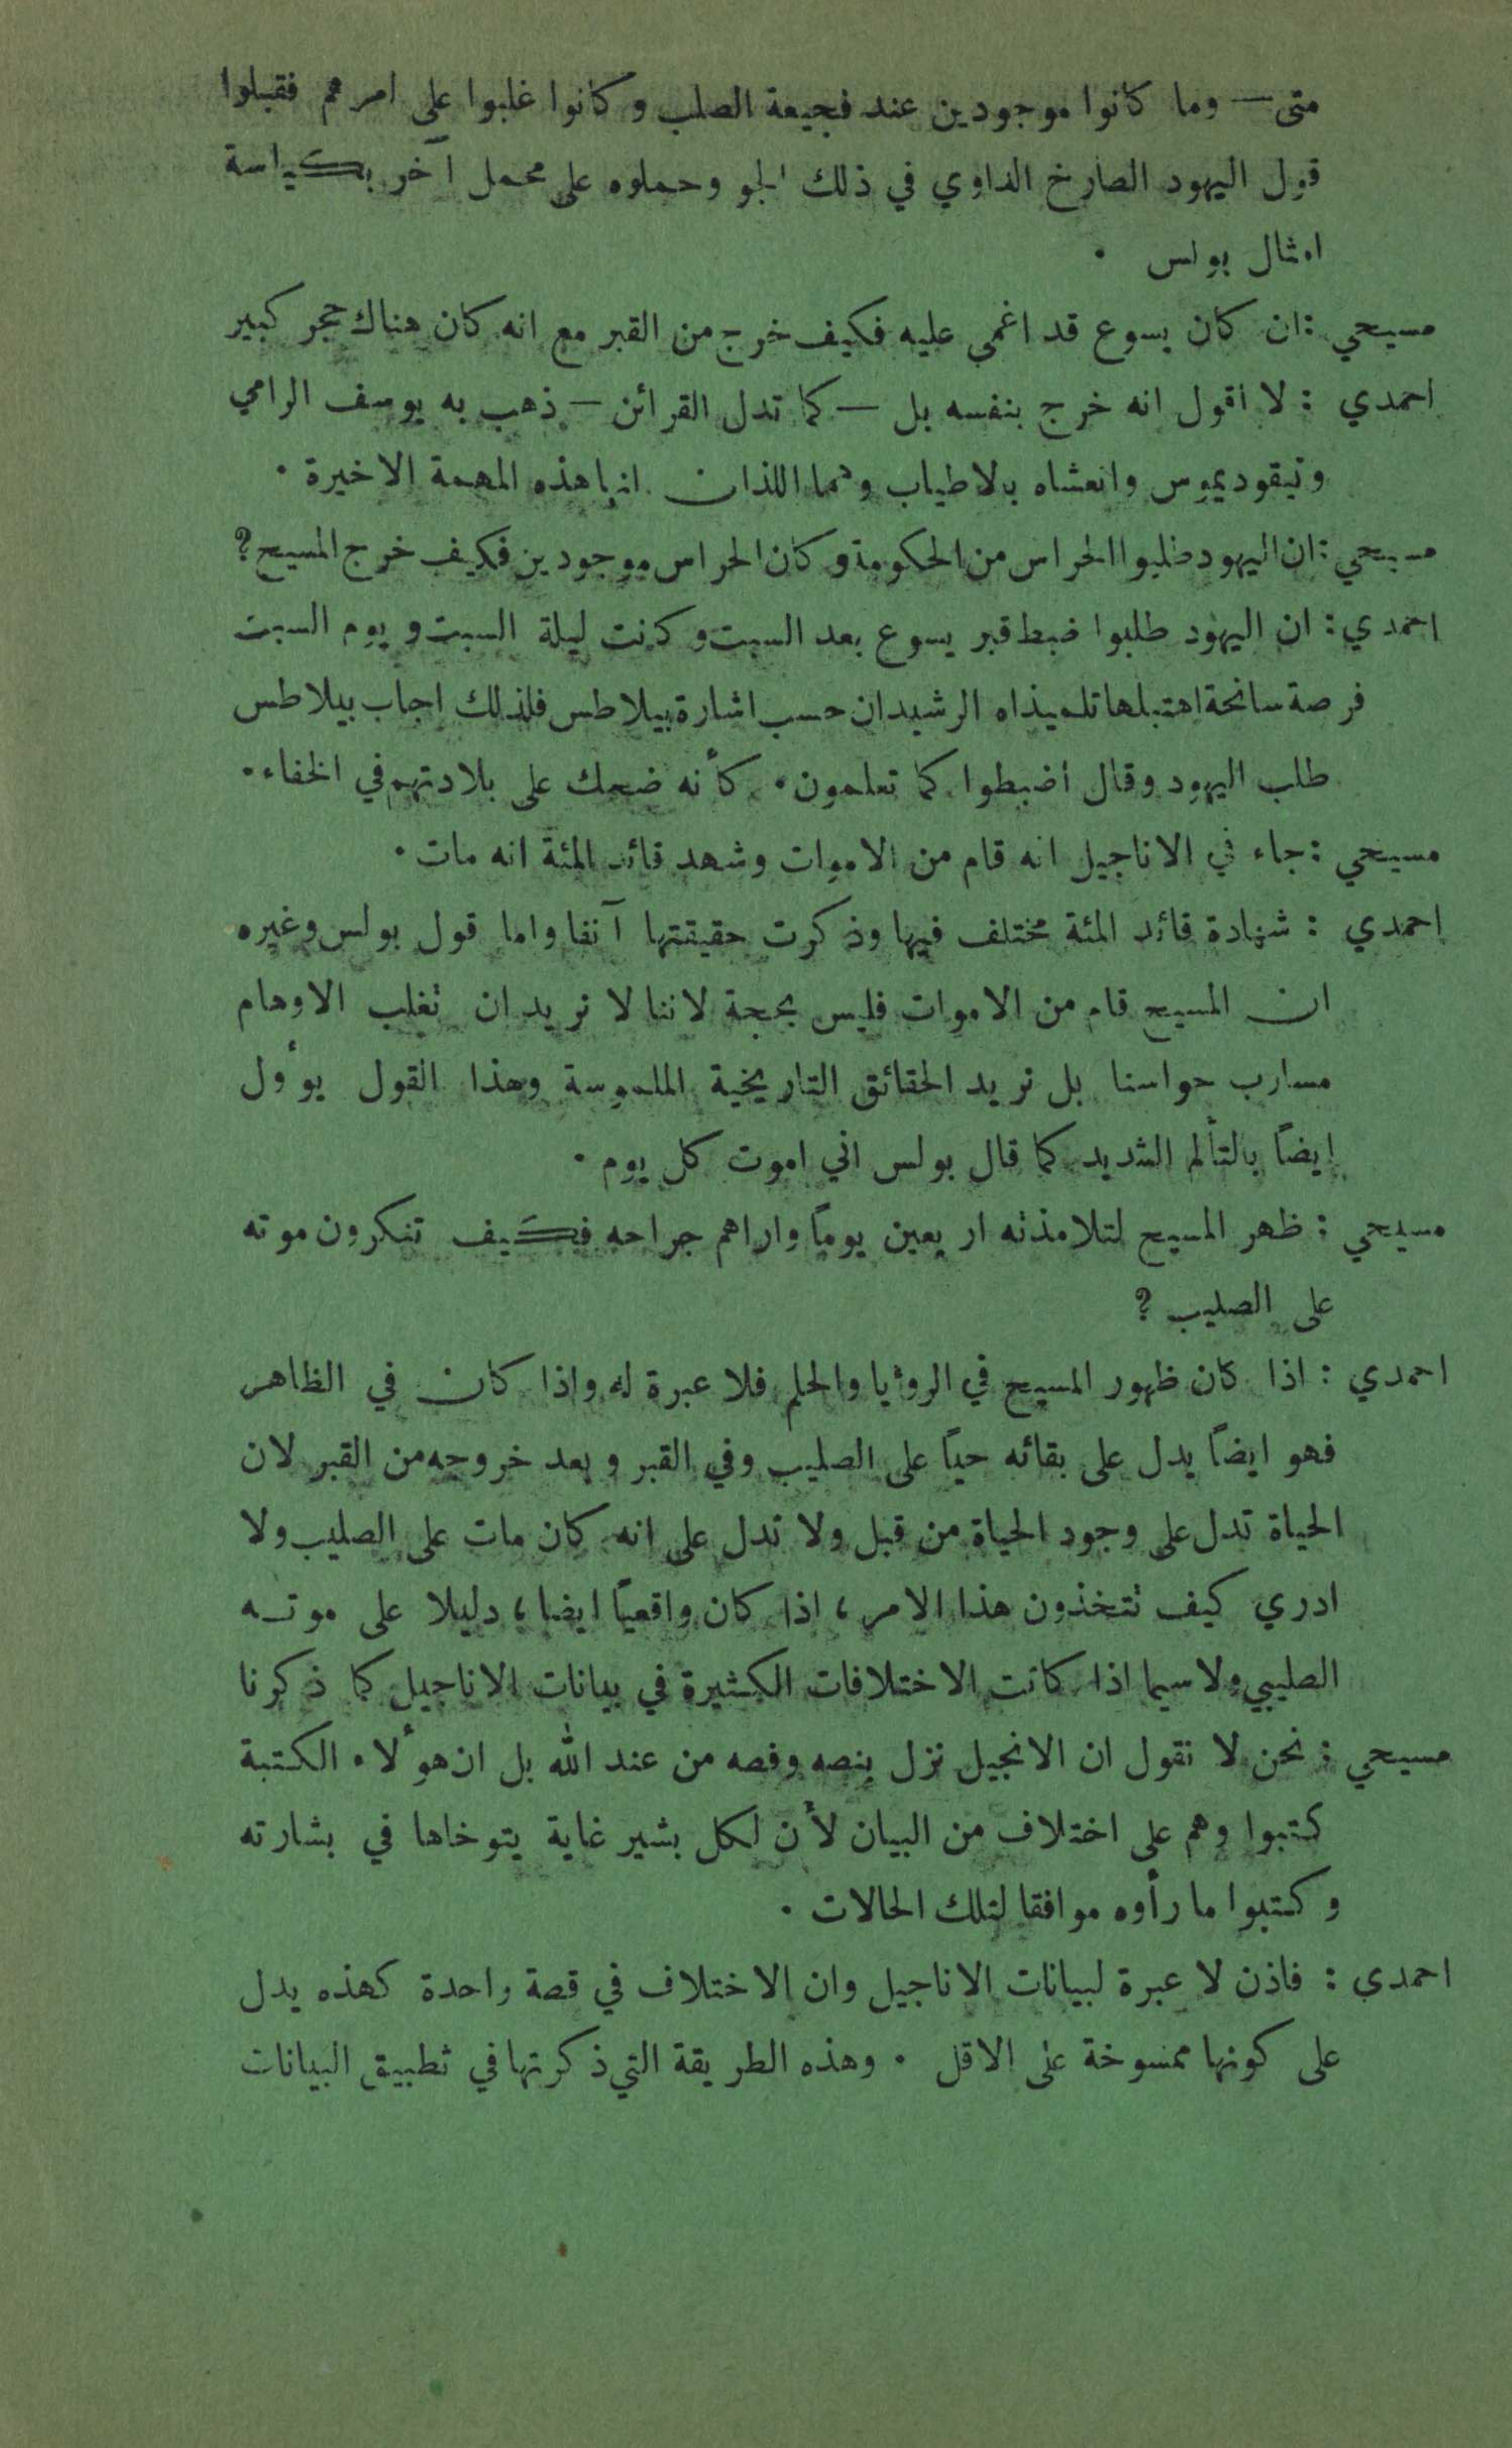 متى — وما كانوا موجودين عند فجيعة الصلب وكانوا غلبوا على امرهم فقبلوا
قول اليهود الصارخ الداوي في ذلك الجو وحملوه على محمل آخر بكياسة
امثال بولس .
مسيحي : ان كان يسوع قد اغمي عليه فكيف خرج من القبر مع انه كان هناك حجر كبير
احمدي : لا اقول انه خرج بنفسه بل — كما تدل القرائن — ذهب به يوسف الرامي
ونيقوديموس وانعشاه بالاطياب وهما اللذان انهيا هذه المهمة الاخيرة .
مسيحي : ان اليهود طلبوا الحراس من الحكومة وكان الحراس موجودين فكيف خرج المسيح ؟
احمدي : ان اليهود طلبوا ضبط قبر يسوع بعد السبت وكانت ليلة السبت ويوم السبت
فرصة سانحة اهتبلها تلميذاه الرشيدان حسب اشارة بيلاطس فلذلك اجاب بيلاطس
طلب اليهود وقال اضبطوا كما تعلمون . كأنه ضحك على بلادتهم في الخفاء .
مسيحي : جاء في الاناجيل انه قام من الاموات وشهد قائد المئة انه مات .
احمدي : شهادة قائد المئة مختلف فيها وذكرت حقيقتها آنفا واما قول بولس وغيره
ان المسيح قام من الاموات فليس بحجة لاننا لا نريد ان تغلب الاوهام
مسارب حواسنا بل نريد الحقائق التاريخية الملموسة وهذا القول يوأول
ايضاً بالتألم الشديد كما قال بولس اني اموت كل يوم .
مسيحي : ظهر المسيح لتلامذته اربعين يوماً واراهم جراحه فكيف تنكرون موته
على الصليب ؟
احمدي : اذا كان ظهور المسيح في الروءيا والحلم فلا عبرة له واذا كان في الظاهر
فهو ايضاً يدل على بقائه حياً على الصليب وفي القبر وبعد خروجه من القبر لان
الحياة تدل على وجود الحياة من قبل ولا تدل على انه كان مات على الصليب ولا
ادري كيف تتخذون هذا الامر ، اذا كان واقعياً ايضا ، دليلا على موته
الصليبي ولاسيما اذا كانت الاختلافات الكثيرة في بيانات الاناجيل كما ذكرنا
مسيحي : نحن لا نقول ان الانجيل نزل بنصه وفصه من عند الله بل ان هوألاء الكتبة
كتبوا وهم على اختلاف من البيان لأن لكل بشير غاية يتوخاها في بشارته
وكتبوا ما رأوه موافقا لتلك الحالات .
احمدي : فاذن لا عبرة لبيانات الاناجيل وان الاختلاف في قصة واحدة كهذه يدل
على كونها ممسوخة على الاقل . وهذه الطريقة التي ذكرتها في تطبيق البيانات